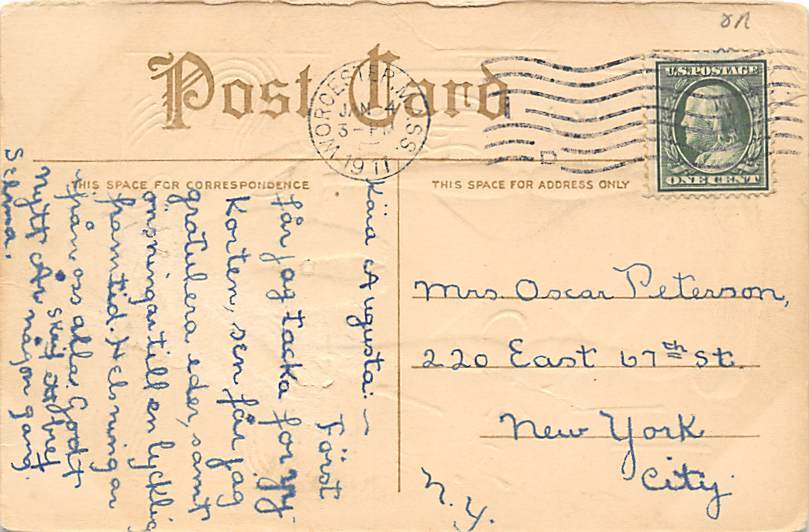 Post Card
WORCESTER, MASS.
JAN 4
3-PM
1911
D
U.S. POSTAGE
ONE CENT
THIS SPACE FOR CORRESPONDENCE
THIS SPACE FOR ADDRESS ONLY
Kära Augusta:~
Först
får jag tacka for
Korten, sen får jag
gratulera eder, samt
önsningar till en lycklig
framtid. Helsningar
från oss alla. Godt
Nytt År
Selma.
skrif ett bref
någon gang
Mrs. Oscar Peterson,
220 East 67th St.
New York
City.
N.Y.